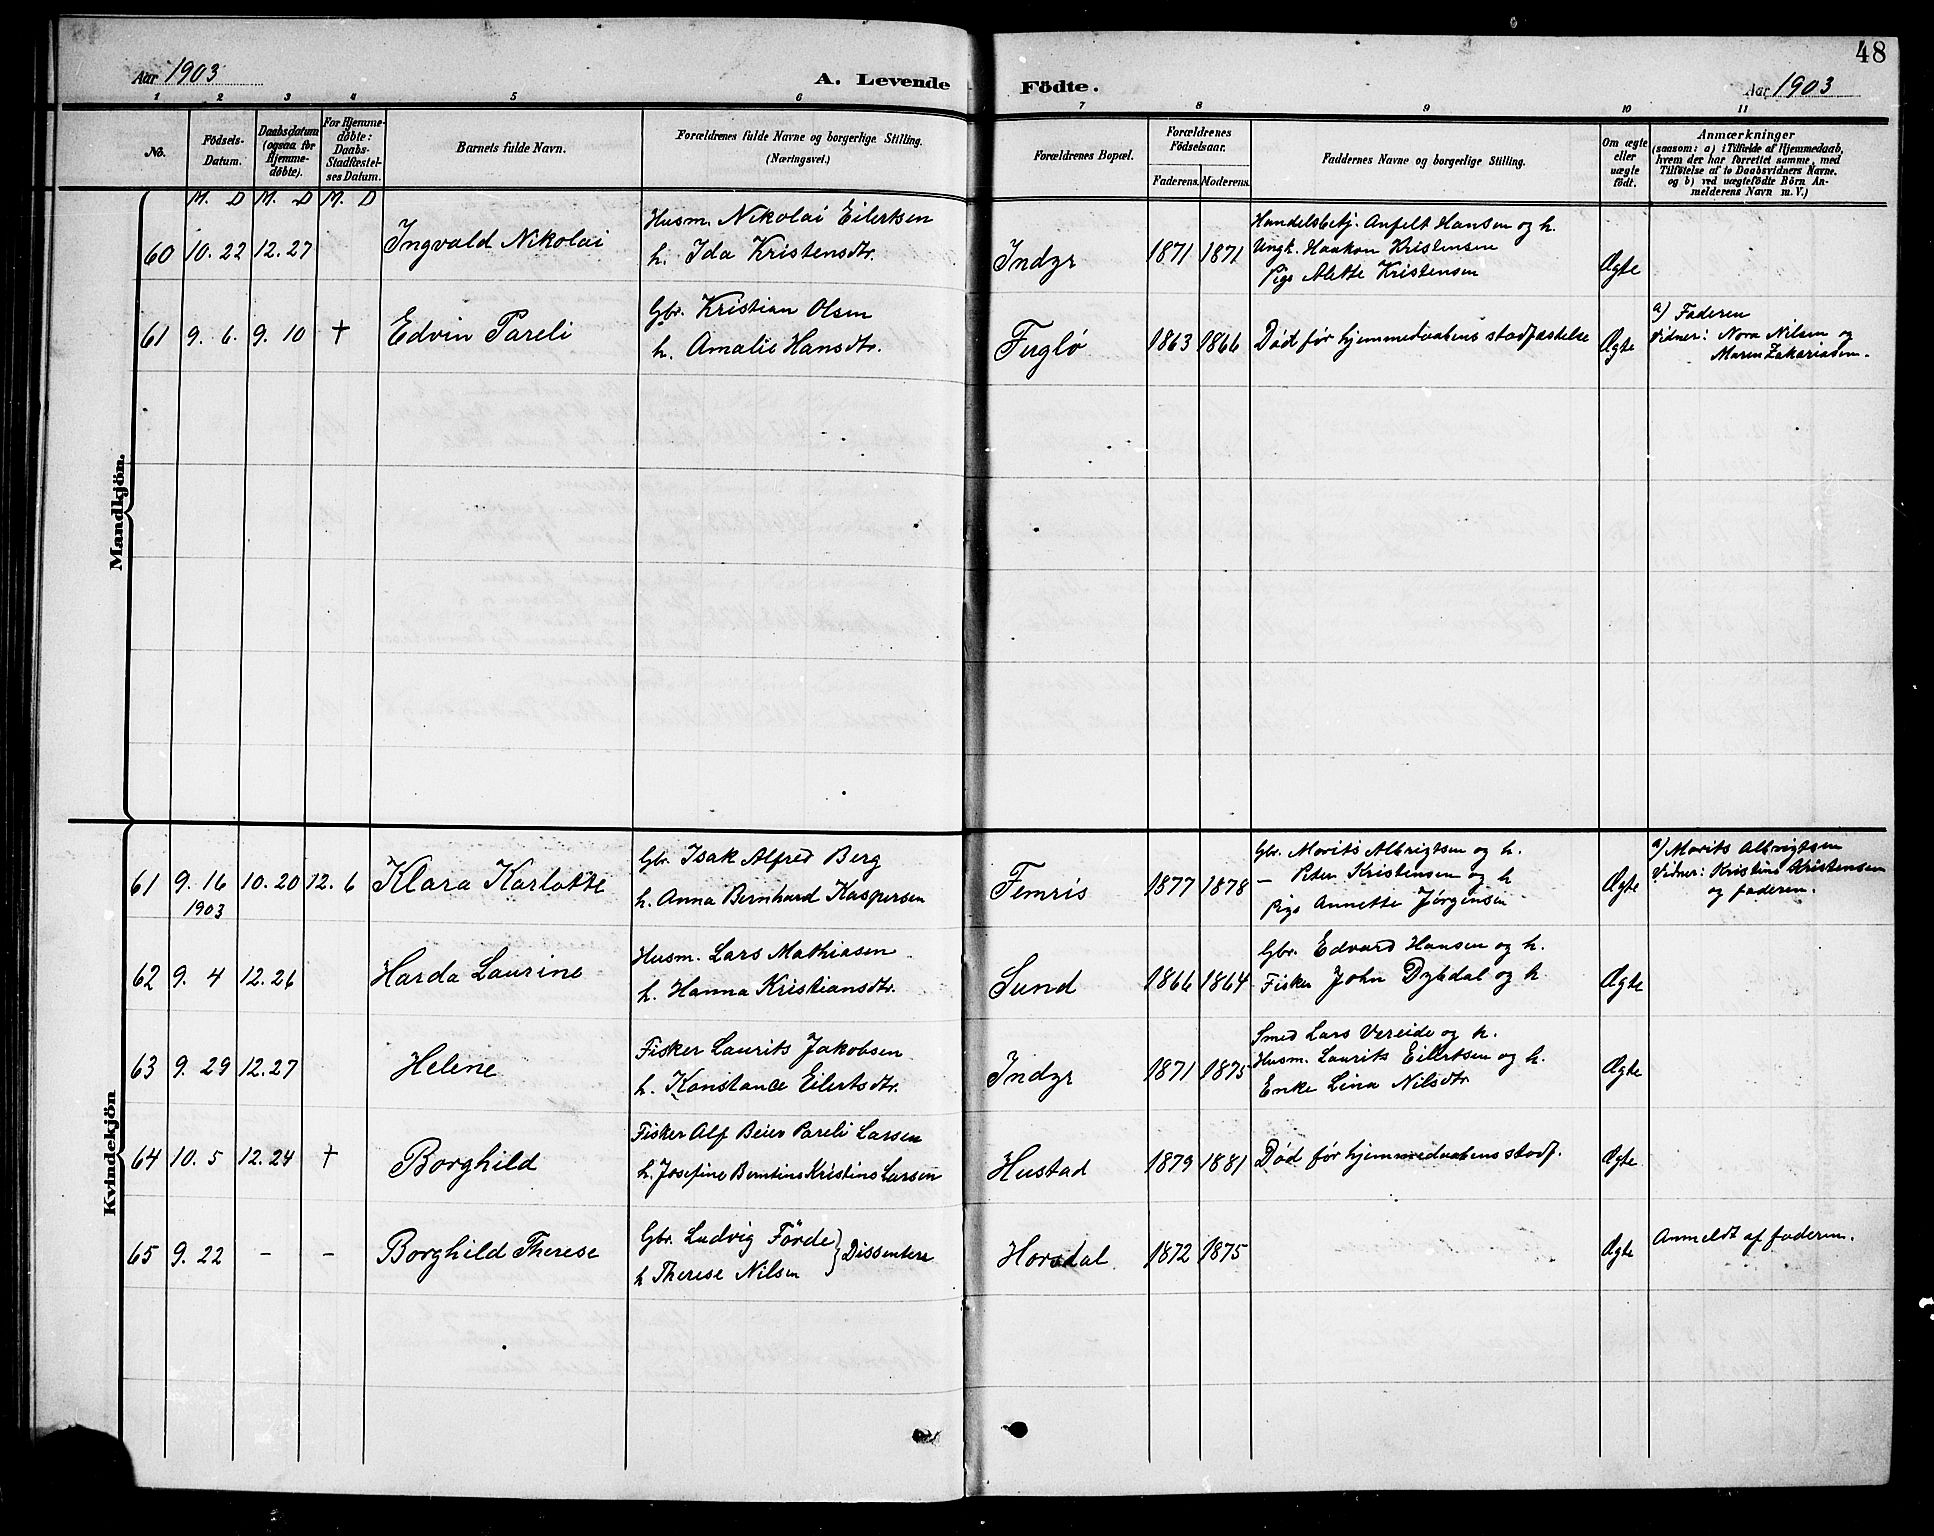 48
Aar 1903
A. Levende Födte.
Aar 1903
1 2 3 4 5 6 7 8 9 10 11
No.
Födsels-Datum.
Daabsdatum (ogsaa for Hjemme-döbte).
For Hjemme-döbte: Daabs-Stadfæstel-ses Datum.
Barnets fulde Navn.
Forældrenes fulde Navne og borgerlige Stilling.
(Næringsvei.)
Forældrenes Bopæl.
Forældrenes Födselsaar.
Faderens. Moderens.
Faddernes Navne og borgerlige Stilling.
Om ægte eller uægte födt.
Anmærkninger
(saasom: a) i Tilfælde af Hjemmedaab,
hvem der har forrettet samme, med
Tilföielse af to Daabsvidners Navne.
og b) ved uægtefödte Börn An-
melderens Navn m. V.)
M. D M. D M. D
Mandkjön.
Husm. Nikolai Eilertsen
Handelsbetj. Anfelt Hansen og h.
60 10. 22 12. 27 Ingvald Nikolai h. Ida Kristensdtr. Indyr 1871 1871 Ungk. Haakon Kristensen Ægte
Pige Alette Kristensen
Gbr. Kristian Olsen
a) Faderen
61 9. 6. 9. 10 † Edvin Pareli h. Amalie Hansdtr. Fuglø 1863 1866 Død før hjemmedaabens stadfæstelse Ægte Vidner: Nora Nilsen og
Maren Zakariasen.
Kvindekjön
Gbr. Isak Alfred Berg
Gbr. Morits Albrigtsen og h.
a) Morits Albrigtsen
61 9. 16 10. 20 12. 6 Klara Karlotte h. Anna Bernhard Kaspersen Femris 1877 1878 — Peter Kristensen og h Ægte Vidner: Kristine Kristensen
1903
Pige Annette Jørgensen
og faderen.
Husm. Lars Mathiasen
Gbr. Edvard Hansen og h.
62 9. 4 12. 26 Harda Laurine h. Hanna Kristiansdtr. Sund 1866 1864 Fisker John Dybdal og h. Ægte
Fisker Laurits Jakobsen
Smed Lars Vereide og h.
63 9. 29 12. 27 Helene h. Konstance Eilertsdtr. Indyr 1871 1875 Husm. Laurits Eilertsen og h. Ægte
Enke Lina Nilsdtr
Fisker Alf Beier Pareli Larsen
64 10. 5 12. 24 † Borghild h. Josefine Berntine Kristine Larsen Hustad 1879 1881 Død før hjemmedaabens stadf. Ægte
Gbr. Ludvig Förde } Dissentere
65 9. 22 – – Borghild Therese h Therese Nilsen Horsdal 1872 1875 Ægte Anmeldt af faderen.